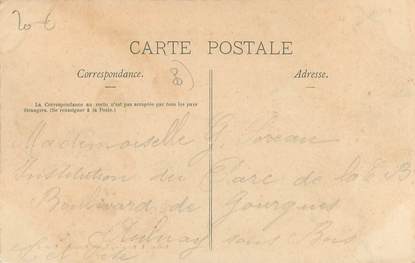 20 €
CARTE POSTALE
8
Correspondance.
Adresse.
La Correspondance au recto n'est pas acceptée par tous les pays
étrangers. (Se renseigner à la Poste.)
Mademoiselle G.
Institution du Parc de la
Boulevard de Gourgues
Aulnay sous Bois